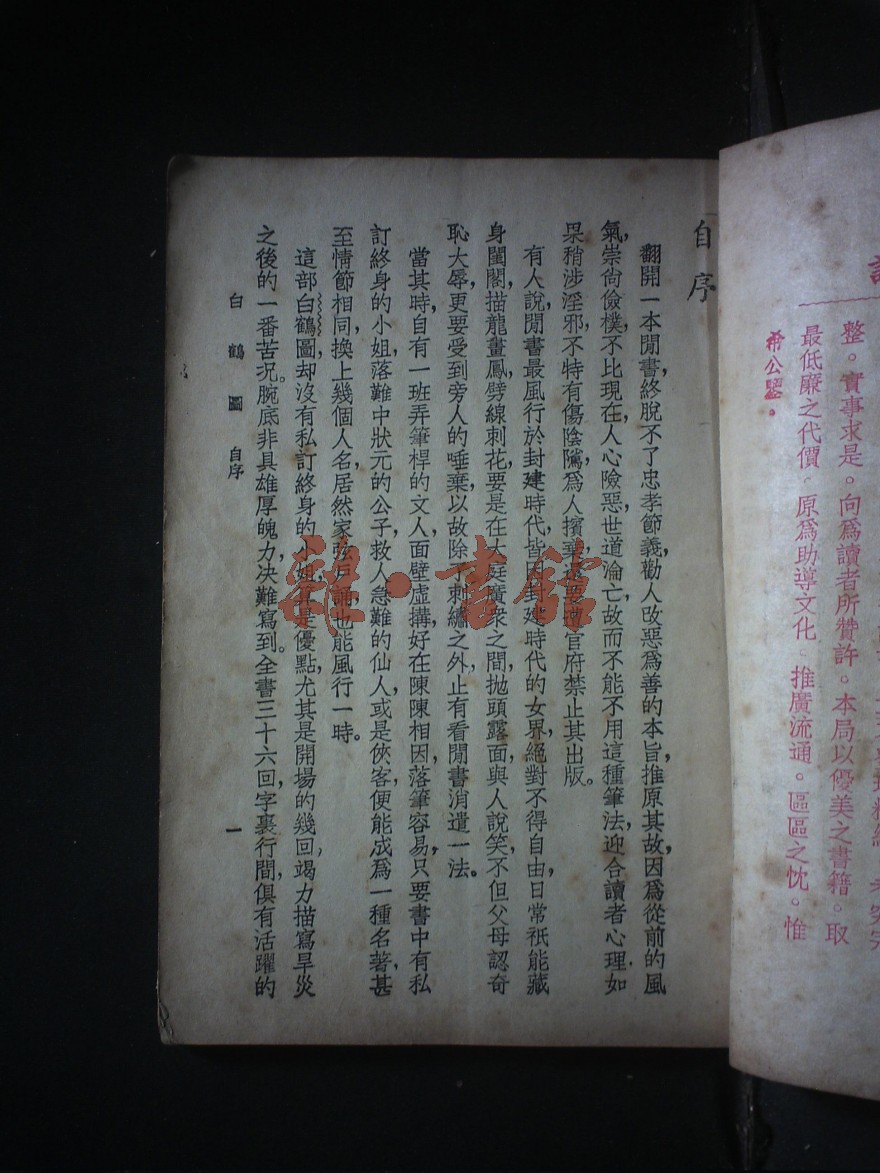 自序
翻開一本閒書，終脫不了忠孝節義勸人改惡爲善的本旨，推原其故，因爲從前的風
氣，崇尙儉樸，不比現在，人心險惡，世道淪亡，故而不能不用這種筆法，迎合讀者心理，如
果稍涉淫邪，不特有傷陰隲，爲人擯棄，還要遭官府禁止其出版。
有人說，閒書最風行於封建時代，皆因封建時代的女界，絕對不得自由，日常祇能藏
身閨閣，描龍畫鳳，劈線刺花，要是在大庭廣衆之間，拋頭露面，與人說笑，不但父母認奇
恥大辱，更要受到旁人的唾棄，以故除了刺繡之外，止有看閒書消遣一法。
當其時，自有一班弄筆桿的文人，面壁虛搆，好在陳陳相因，落筆容易，只要書中有私
訂終身的小姐，落難中狀元的公子，救人急難的仙人，或是俠客，便能成爲一種名著，甚
至情節相同，換上幾個人名，居然家弦戶誦，也能風行一時。
這部白鶴圖，却沒有私訂終身的小姐，算是優點，尤其是開場的幾回，竭力描寫旱災
之後的一番苦况。腕底非具雄厚魄力，决難寫到。全書三十六回，字裏行間，俱有活躍的
白鶴圖 自序
一
整。實事求是。向爲讀者所贊許。本局以優美之書籍。取
最低廉之代價。原爲助導文化。推廣流通。區區之忱。惟
希公鑒。
雜·書館